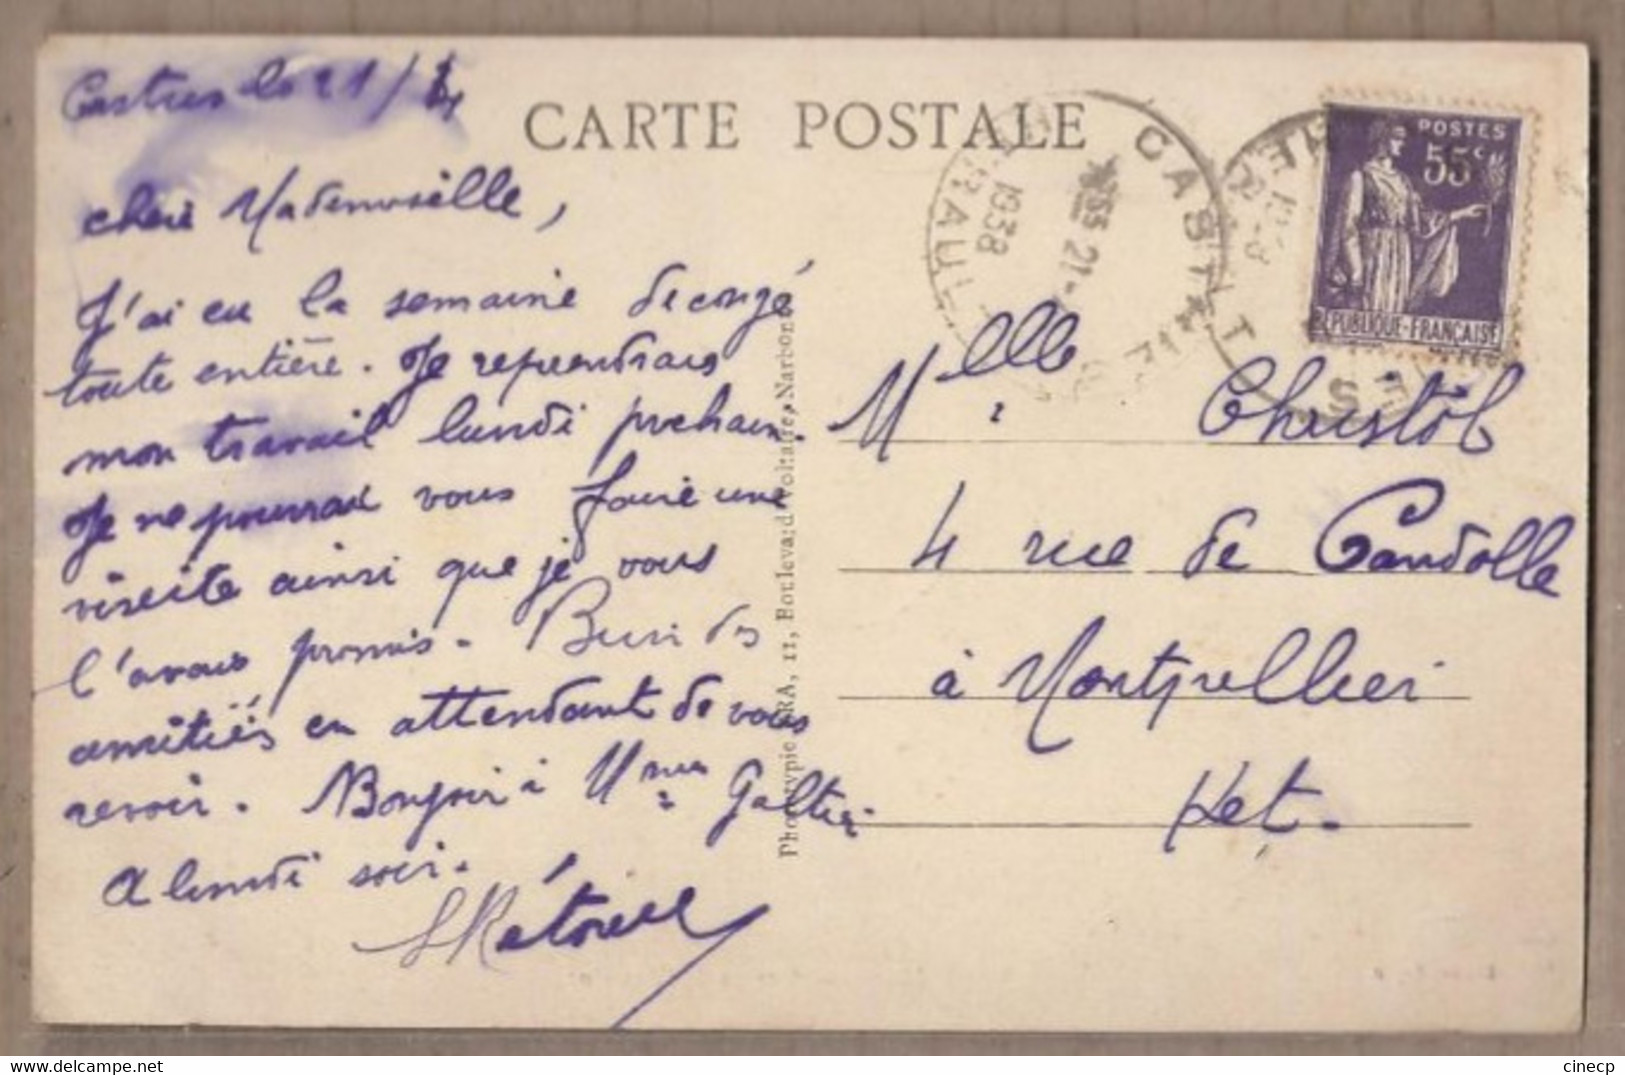 Castries le 21/4
CARTE POSTALE
chère Mademoiselle,
J'ai eu la semaine de congé
toute entière. Je reprendrais
mon travail lundi prochain.
Je ne pourrai vous faire une
viseite ainsi que je vous
l'avais promis. Bien des
amitiés en attendant de vous
revoir. Bonjour à Mme Galtier
A lundi soir.
POSTES
55c
REPUBLIQUE-FRANÇAISE
CASTRIES
HERAULT
21
1938
Melle Christol
4 rue de Candolle
à Montpellier
Het.
11, Boulevard Voltaire, Narbonne
cinecp